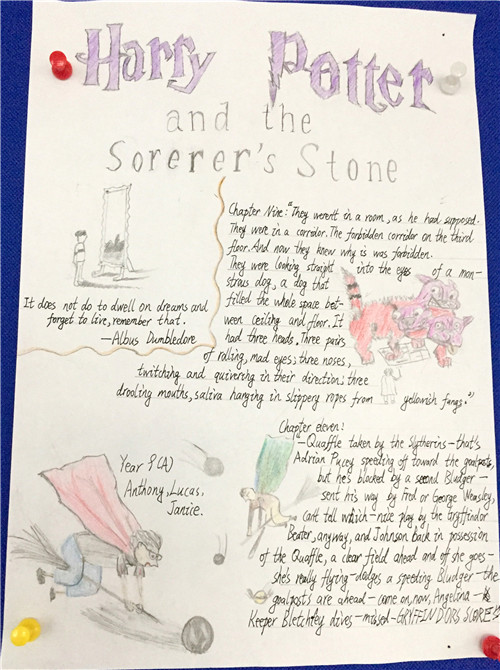 Harry Potter
and the
Sorerer's Stone
Chapter Nine: "They weren't in a room, as he had supposed.
They were in a corridor. The forbidden corridor on the third
floor. And now they knew why is was forbidden.
They were looking straight into the eyes of a mon-
strous dog, a dog that
filled the whole space bet-
ween ceiling and floor. It
had three heads. Three pairs
of rolling, mad eyes; three noses,
twitching and quivering in their direction; three
drooling mouths, saliva hanging in slippery ropes from yellowish fangs."
It does not do to dwell on dreams and
forget to live, remember that.
—Albus Dumbledore
Chapter eleven:
"—Quaffle taken by the Slytherins—that's
Adrian Pucey speeding off toward the goalposts,
but he's blocked by a second Bludger—
sent his way by Fred or George Weasley,
can't tell which—nice play by the Gryffindor
Beater, anyway, and Johnson back in possession
of the Quaffle, a clear field ahead and off she goes—
she's really flying—dodges a speeding Bludger—the
goalposts are ahead—come on, now, Angelina—
Keeper Bletchley dives—missed—GRYFFINDORS SCORE!"
Year 9(A)
Anthony, Lucas,
Janice.